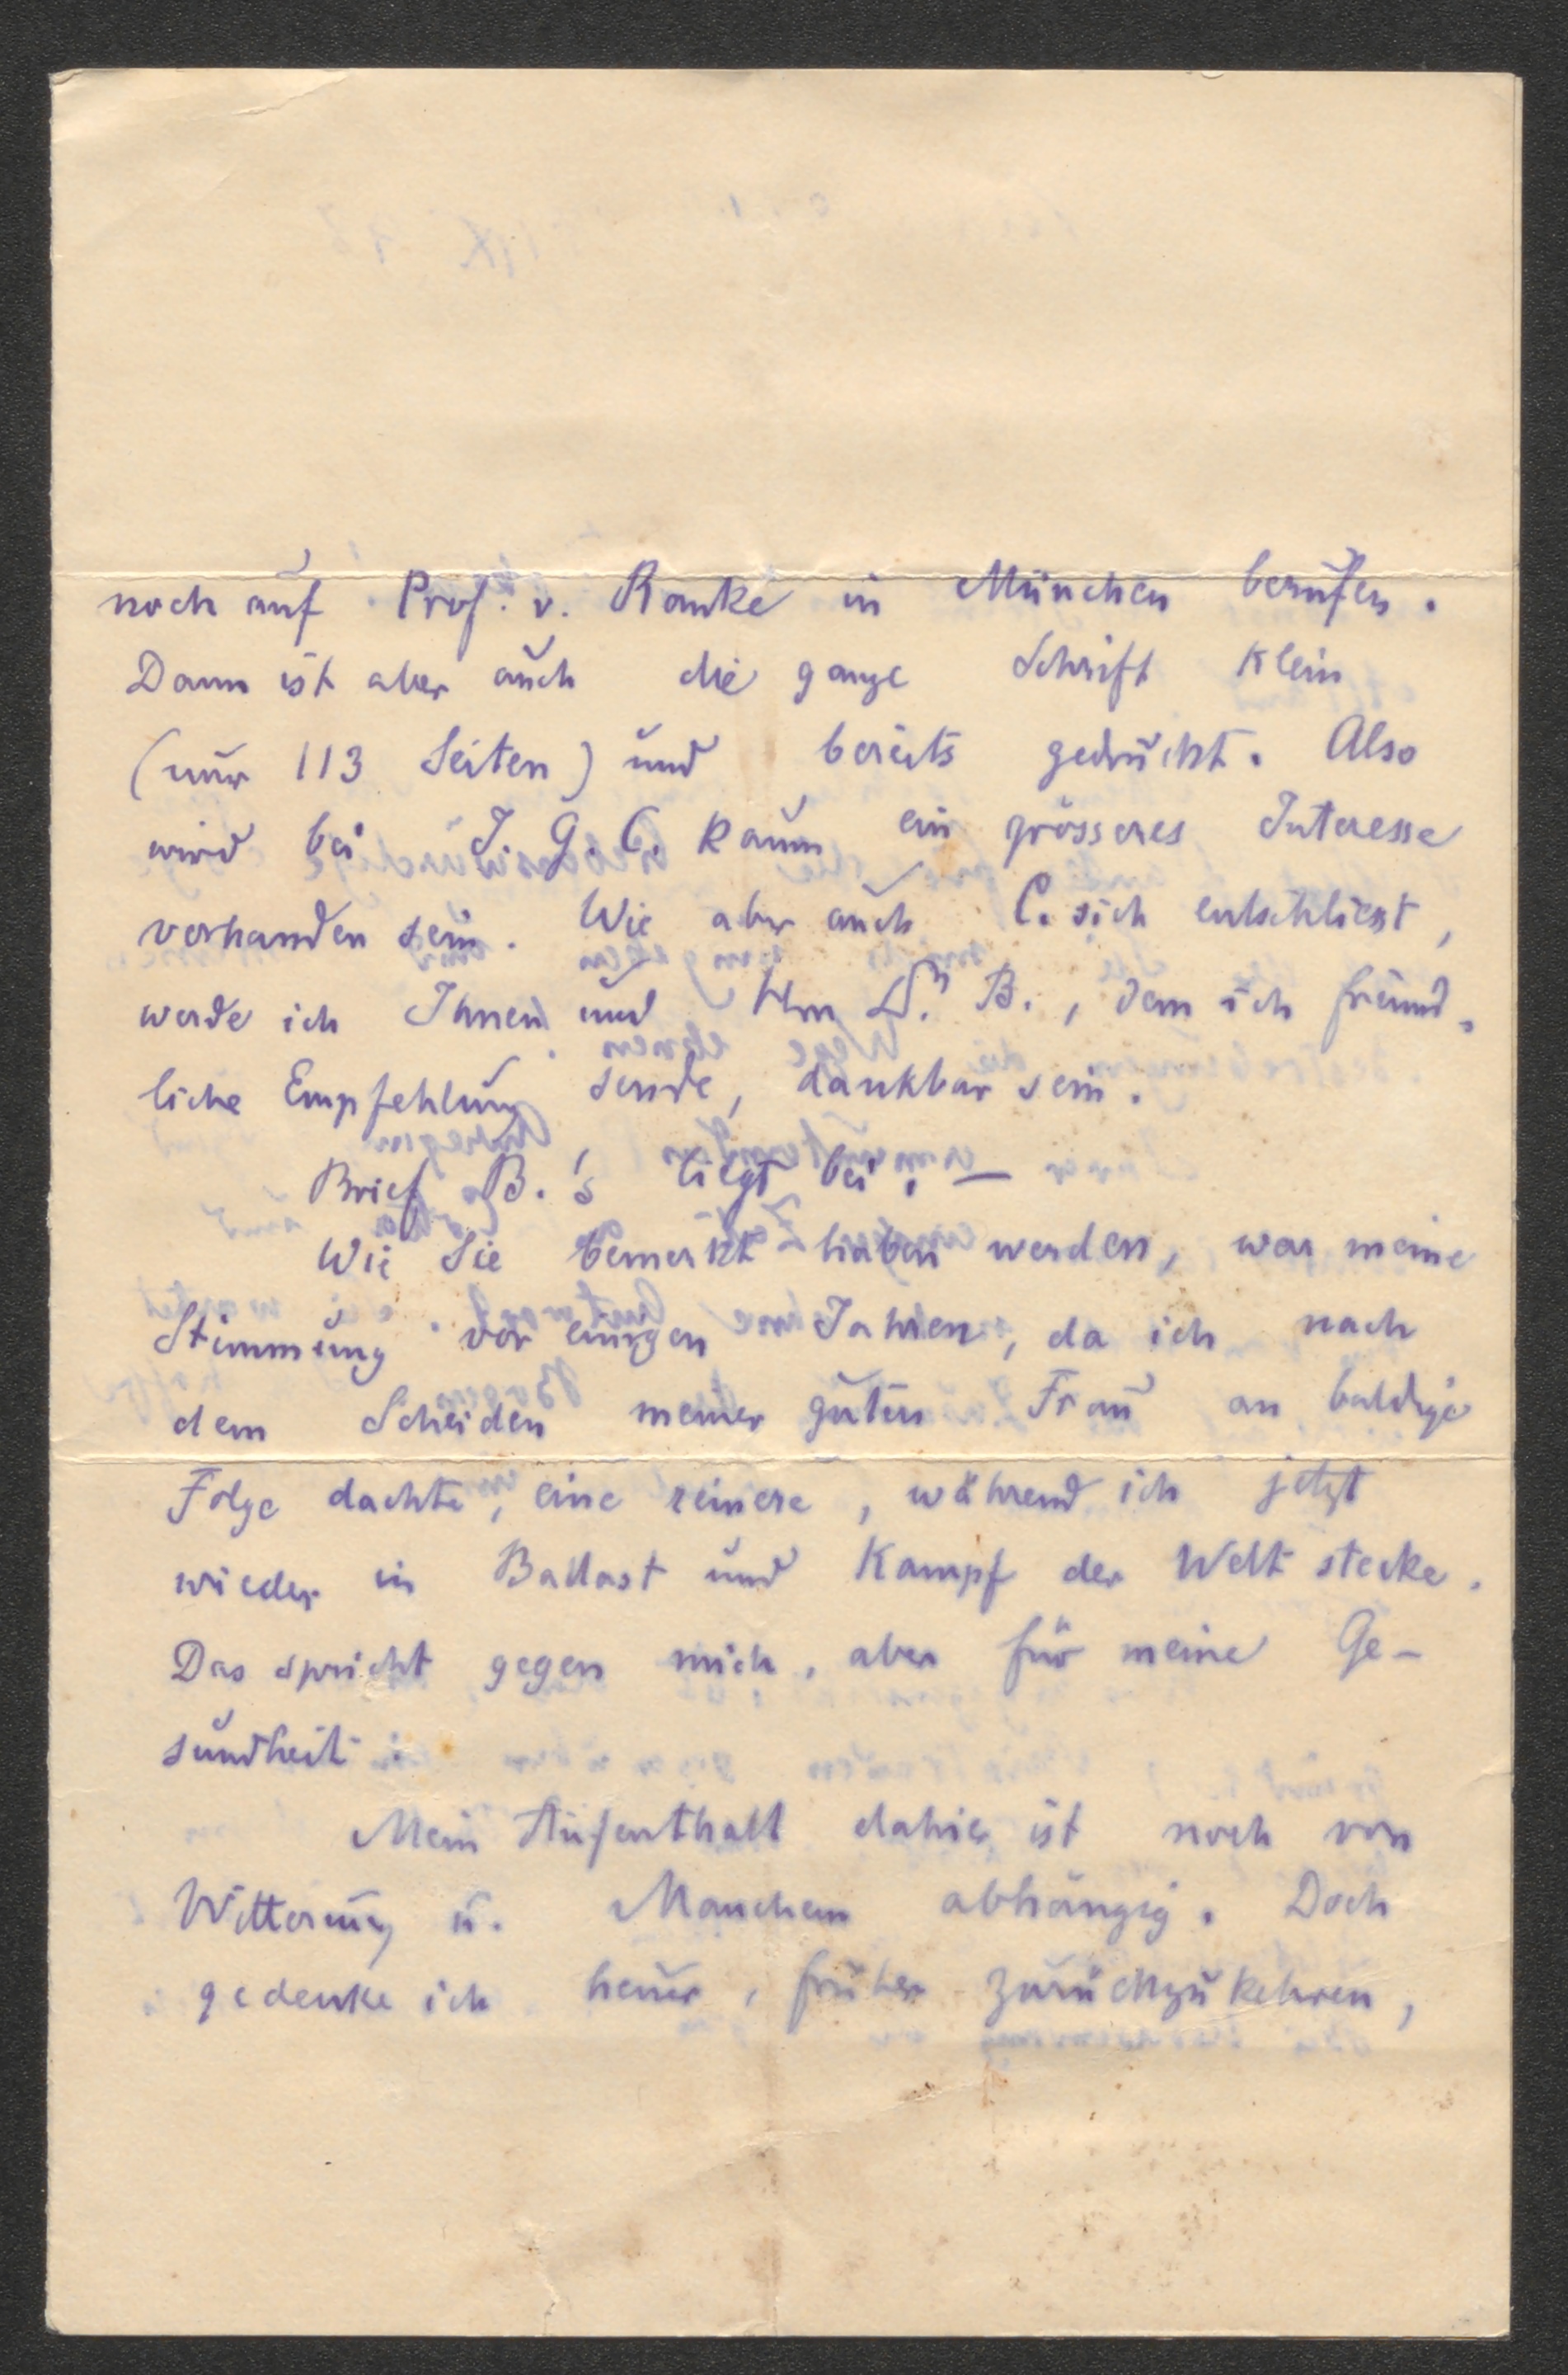 noch auf Prof. v. Ranke in München berufen.
Dann ist aber auch die ganze Schrift klein
(nur 113 Seiten) und bereits gedruckt. Also
wird bei J. G. C. kaum ein grösseres Interesse
vorhanden sein. Wie aber auch C. sich entschliesst,
werde ich Ihnen und Hrn Dr. B., dem ich freund-
liche Empfehlung sende, dankbar sein.
Brief B.'s liegt bei. —
Wie Sie bemerkt haben werden, war meine
Stimmung vor einigen Jahren, da ich nach
dem Scheiden meiner guten Frau an baldige
Folge dachte, eine reinere, während ich jetzt
wieder in Ballast und Kampf der Welt stecke.
Das spricht gegen mich, aber für meine Ge-
sundheit.
Mein Aufenthalt dahier ist noch von
Witterung u. Manchem abhängig. Doch
gedenke ich heuer, früher zurückzukehren,